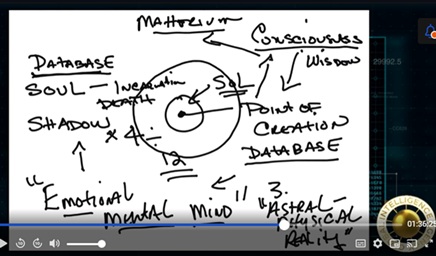 MATTORIUM
CONSCIOUSNESS
WISDOM
DATABASE
SOUL - INCARNATION
DEATH
SOL
SHADOW
x 4 -
POINT OF
CREATION
DATABASE
12
"EMOTIONAL
MENTAL MIND"
3.
"ASTRAL-
PHYSICAL
REALITY"
29992.5
INTELLIGENCE
01:36:2